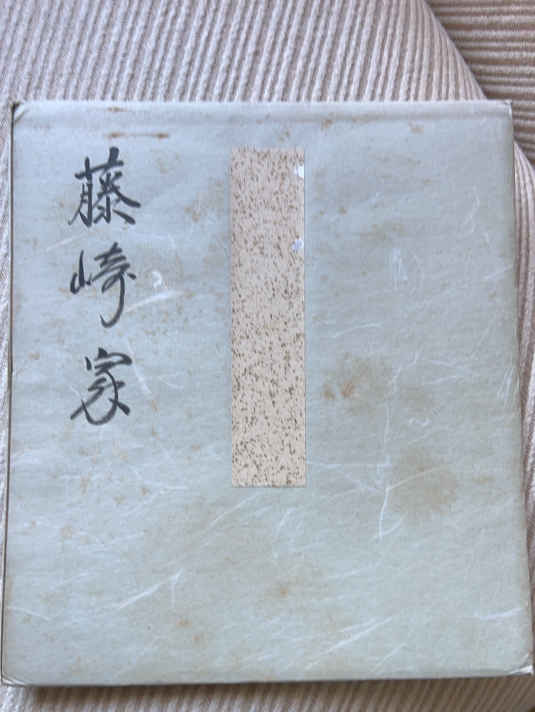 藤崎家